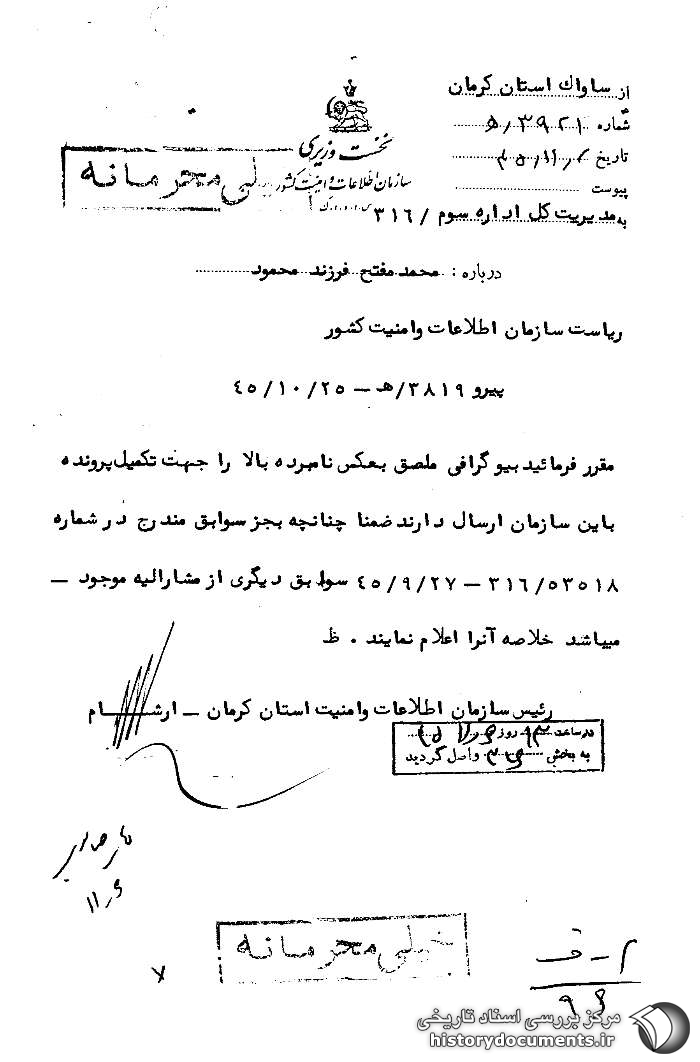 از ساواك استان کرمان
شماره ۳۹۲۱/ﻫ
تاریخ
پیوست
نخست وزیری
سازمان اطلاعات و امنیت کشور
س.ا.و.ا.ک
خیلی محرمانه
به مدیریت کل اداره سوم / ۳۱۶
درباره : محمد مفتح فرزند محمود
ریاست سازمان اطلاعات وامنیت کشور
پیرو ۳۸۱۹/هـ – ۴۵/۱۰/۲۵
مقرر فرمائید بیوگرافی ملصق بعکس نامبرده بالا را جهت تکمیل پرونده
باین سازمان ارسال دارند ضمنا چنانچه بجز سوابق مندرج در شماره
۳۱۶/۵۳۵۱۸ – ۴۵/۹/۲۷ سوابق دیگری از مشارالیه موجود –
میباشد خلاصه آنرا اعلام نمایند . ظ
رئیس سازمان اطلاعات وامنیت استان کرمان – ارشـــام
در ساعت روز
به بخش ۳۱۶ واصل گردید
خیلی محرمانه
۷
مرکز بررسی اسناد تاریخی
historydocuments.ir